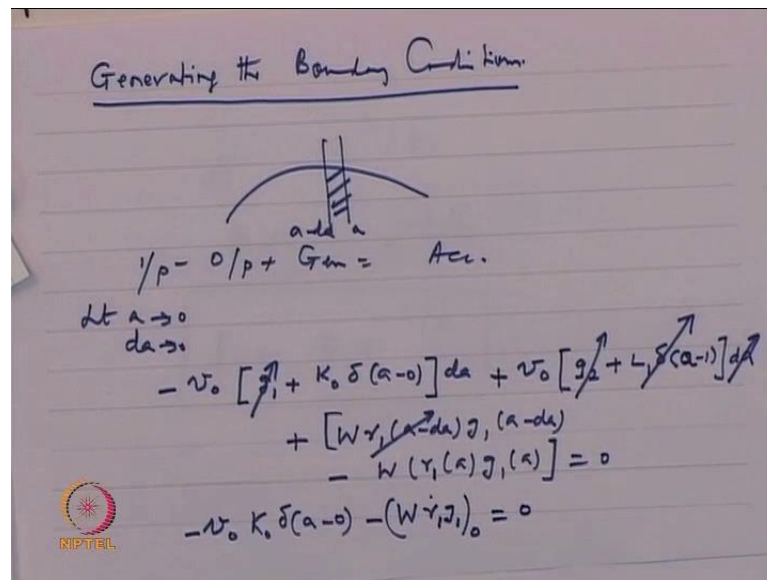 Generating the Boundary Conditions.
a-da a
I/p - O/p + Gen = Acc.
Lt a→0
da→0
- v₀ [g₁ + K₀ δ(a-0)] da + v₀ [g₂ + L₁ δ(a-1)] da
+ [W r₁ (a-da) g₁ (a-da)
- W (r₁(a) g₁(a)] = 0
- v₀ K₀ δ(a-0) - (W r₁ g₁)₀ = 0
NPTEL